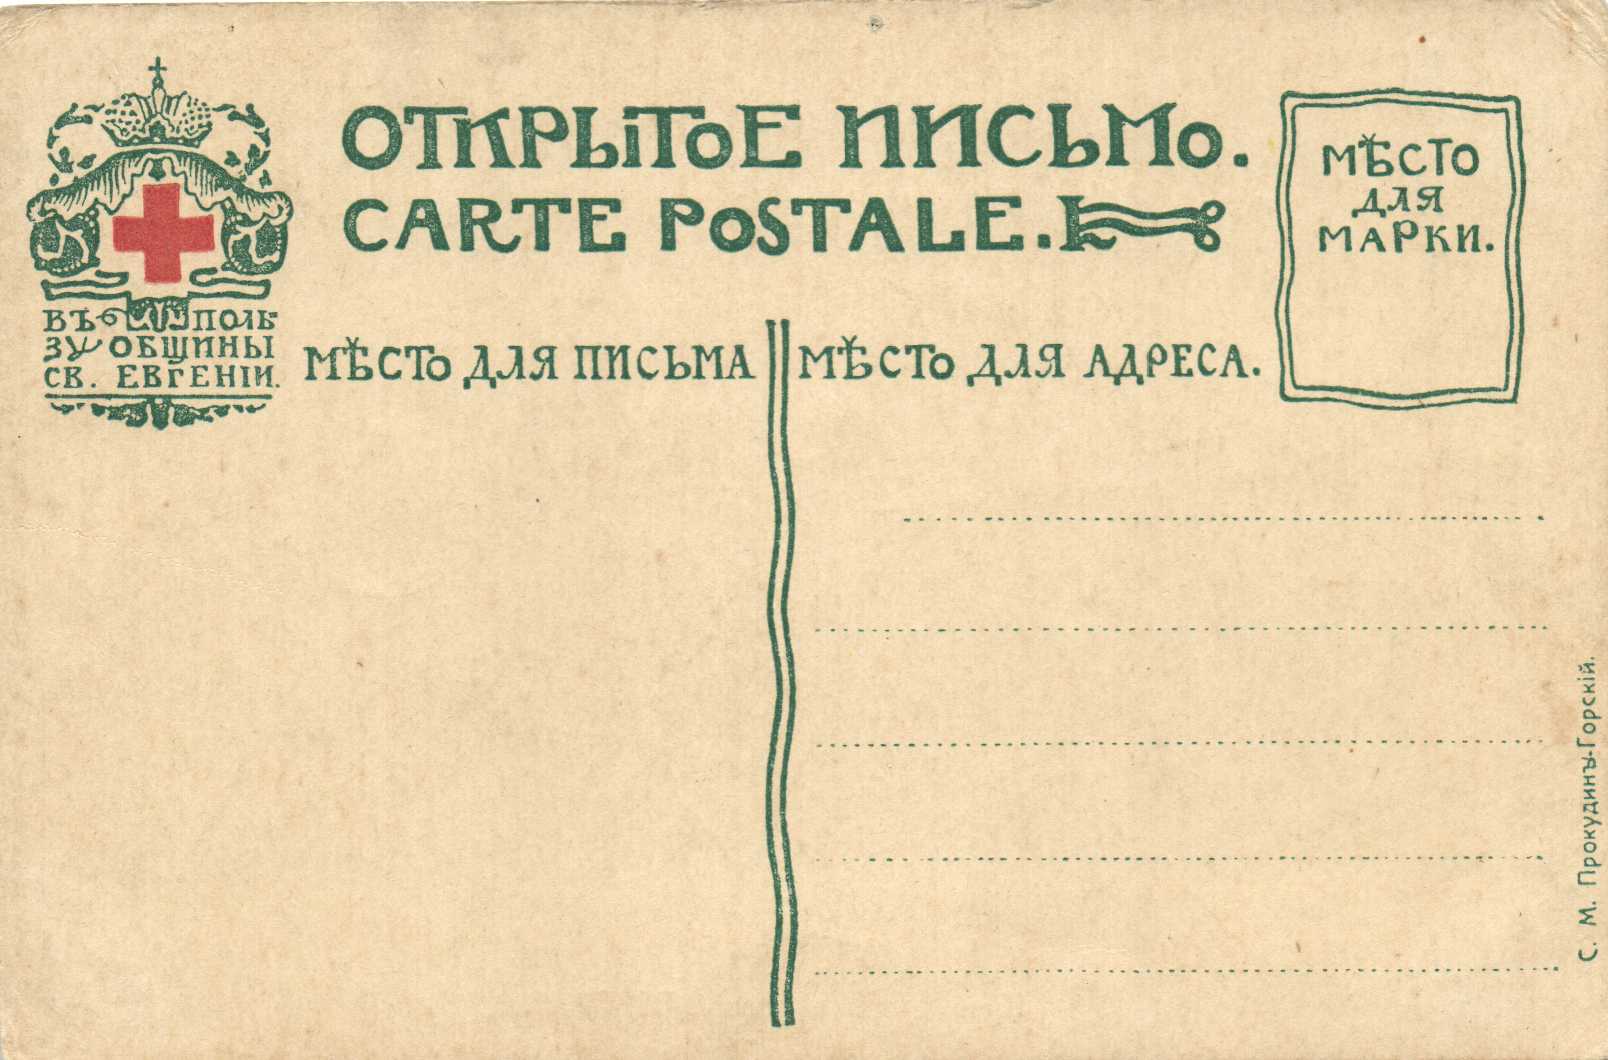 ОТКРЫТОЕ ПИСЬМО.
CARTE POSTALE.
ВЪ ПОЛЬ
ЗУ ОБЩИНЫ
СВ. ЕВГЕНІИ.
МѢСТО ДЛЯ ПИСЬМА
МѢСТО ДЛЯ АДРЕСА.
МѢСТО
ДЛЯ
МАРКИ.
С. М. Прокудинъ-Горскій.